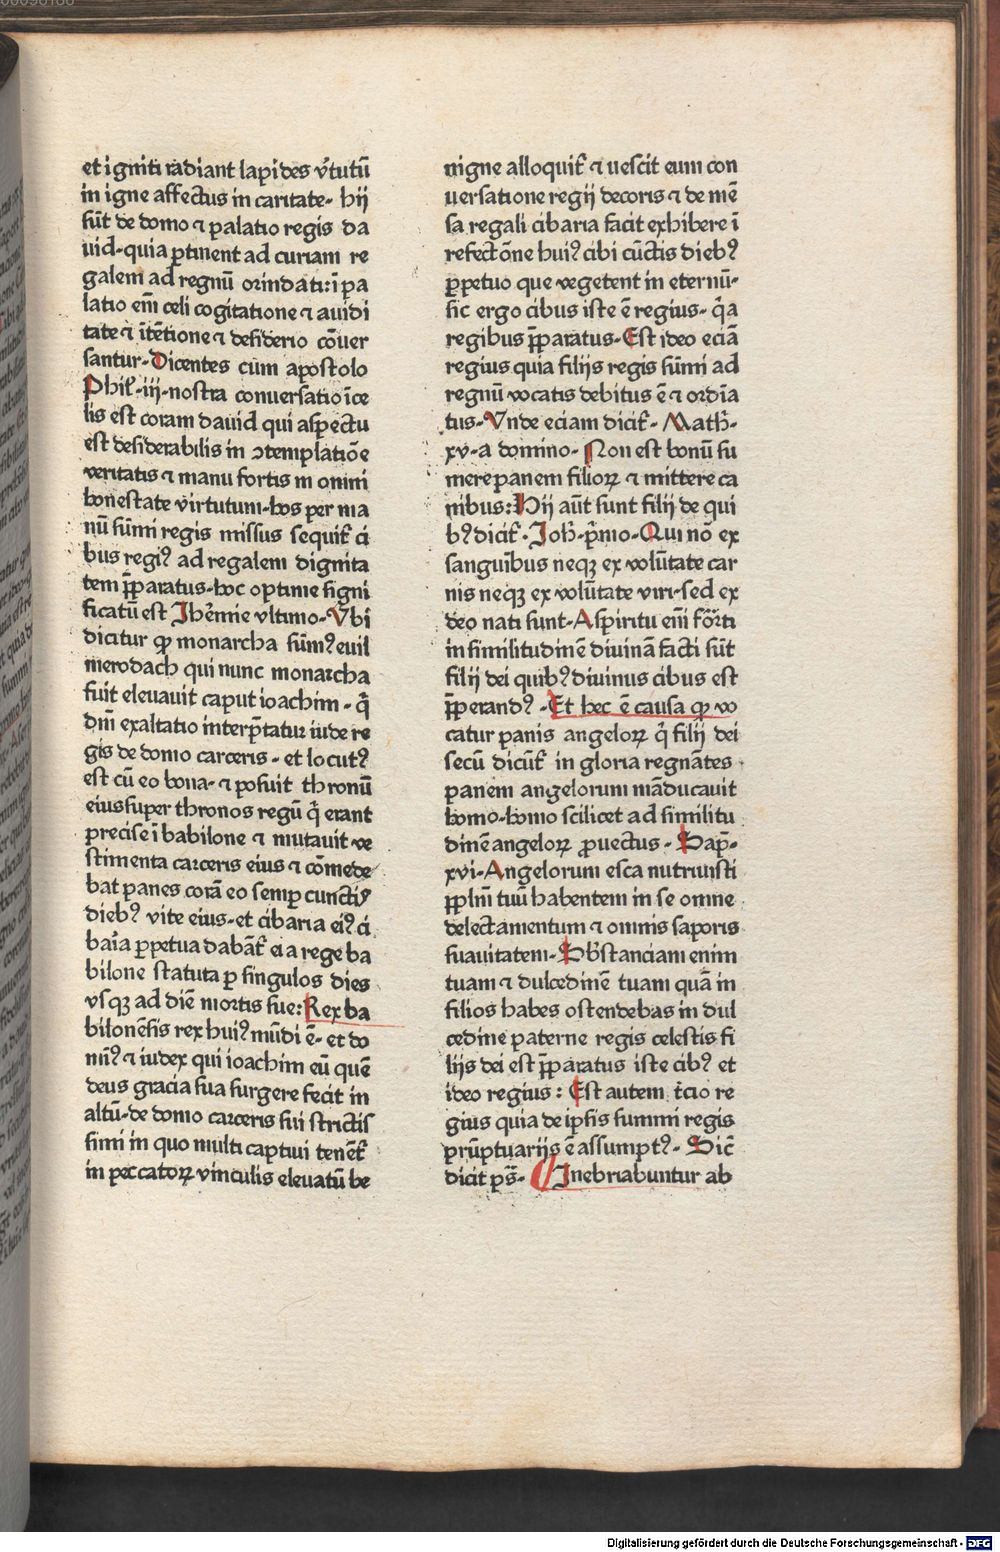 et igniti radiant lapides v̄tutū
in igne affectus in caritate- hij
sūt de domo ⁊ palatio regis da
uid-quia ꝑtinent ad curiam re
galem ad regnū orindati:ī pa
latio em̄ celi cogitatione ⁊ auidi
tate ⁊ ītētione ⁊ desiderio cōuer
santur-Dicentes cum apostolo
Phil̄-iij-nostra conuersatio ī ce
lis est coram dauid qui aspectu
est desiderabilis in ↄtemplatiōe
veritatis ⁊ manu fortis in omni
honestate virtutum-hos per ma
nū sūmi regis missus sequit᷑ ci
bus regiꝰ ad regalem dignita
tem p̄paratus-hoc optime signi
ficatū est Jherēmie vltimo-Vbi
dicitur ꝙ monarcha sūmꝰ euil
merodach qui nunc monarcha
fuit eleuauit caput ioachim-q̄
dn̄i exaltatio interp̄tatur iude re
gis de domo carceris-et locutꝰ
est cū eo bona-⁊ posuit thronū
eius super thronos regū q̄ erant
precise ī babilone ⁊ mutauit ve
stimenta carceris eius ⁊ cōmede
bat panes corā eo semꝑ cunctis
diebꝰ vite eius-et cibaria eiꝰ ci
baīa ꝑpetua dabāt᷑ ei a rege ba
bilone statuta ꝑ singulos dies
vsqꝫ ad diē mortis sue:Rex ba
bilonēsis rex huiꝰ mūdi ē-et do
mīꝰ ⁊ iudex qui ioachim eū quē
deus gracia sua surgere fecit in
altū-de domo carceris sui strictis
simi in quo multi captiui tenēt᷑
in peccatoꝝ vinculis eleuatū be
nigne alloquit᷑ ⁊ vescit eum con
uersatione regij decoris ⁊ de mē
sa regali cibaria facit exhibere ī
refectōne huiꝰ cibi cūctis diebꝰ
ꝑpetuo que vegetent in eternū-
sic ergo cibus iste ē regius-q̄a
regibus p̄paratus-Est ideo eciā
regius quia filijs regis sūmi ad
regnū vocatis debitus ē ⁊ ordīa
tus-Vnde eciam dicit᷑-Math̄-
xv-a domino-Non est bonū su
mere panem filioꝝ ⁊ mittere ca
nibus:Hij aūt sunt filij de qui
bꝰ dicit᷑-Joh̄-p̄mo-Qui nō ex
sanguībus neqꝫ ex volūtate car
nis neqꝫ ex volūtate viri-sed ex
deo nati sunt-A spiritu em̄ fōr̄ti
in similitudinē diuinā facti sūt
filij dei quibꝰ diuinus cibus est
p̄perandꝰ-Et hec ē causa ꝙ vo
catur panis angeloꝝ q̄ filij dei
secū dicūt᷑ in gloria regnātes
panem angelorum māducauit
homo-homo scilicet ad similitu
dinē angeloꝝ ꝓuectus-Sap̄-
xvi-Angelorum esca nutriuisti
ppl̄m tuū habentem in se omne
delectamentum ⁊ omnis saporis
suauitatem-Sb̄stanciam enim
tuam ⁊ dulcedinē tuam quā in
filios habes ostendebas in dul
cedine paterne regis celestis fi
lijs dei est p̄paratus iste cibꝰ et
ideo regius:Est autem t̄cio re
gius quia de ipsis summi regis
prūptuarijs ē assumptꝰ-Sic̄
dicit ps̄-Inebriabuntur ab
Digitalisierung gefördert durch die Deutsche Forschungsgemeinschaft - DFG